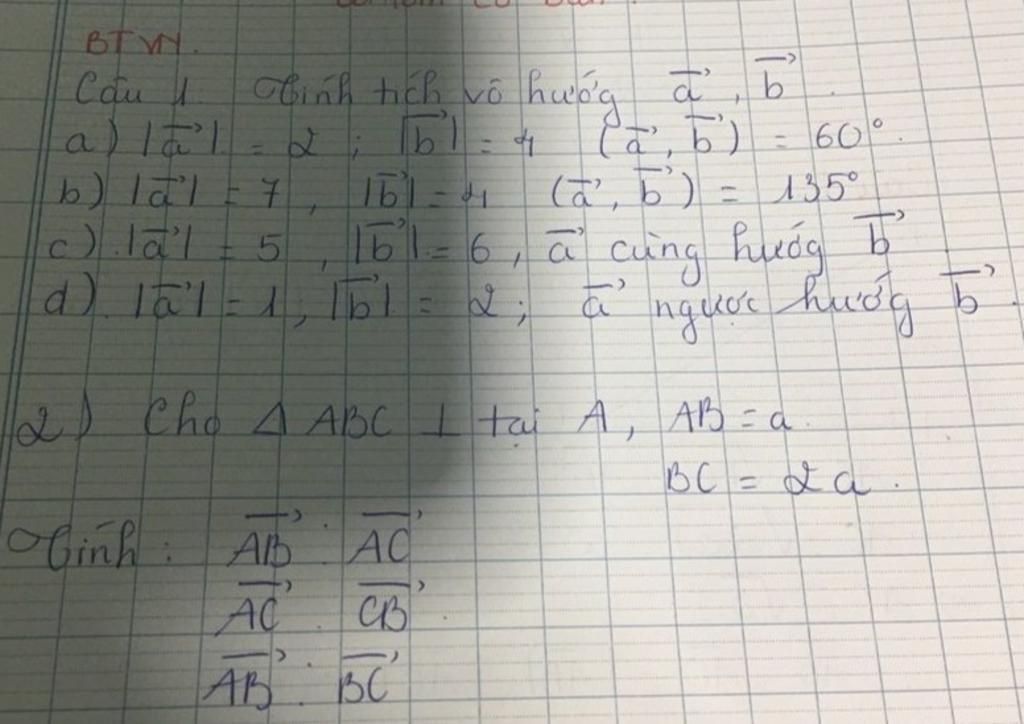 BTVN.
Câu 1. Tính tích vô hướg a⃗, b⃗.
a) |a⃗| = 2 ; |b⃗| = 4 (a⃗, b⃗) = 60°.
b) |a⃗| = 7, |b⃗| = 4 (a⃗, b⃗) = 135°
c) |a⃗| = 5, |b⃗| = 6, a⃗ cùng hướg b⃗
d) |a⃗| = 1, |b⃗| = 2; a⃗ ngược hướg b⃗
2) Cho Δ ABC ⊥ tại A, AB = a.
BC = 2a.
Tính: AB⃗ . AC⃗
AC⃗ . CB⃗.
AB⃗ . BC⃗